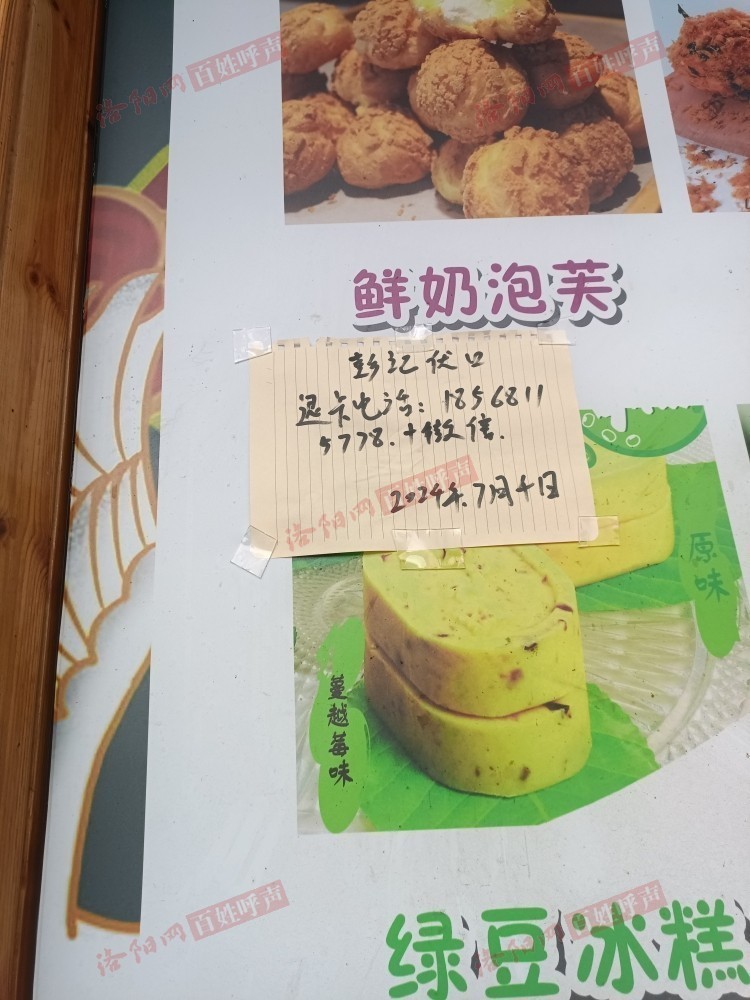 洛阳网 百姓呼声
洛阳网 百姓呼声
鲜奶泡芙
彭记伏口
退卡电话：1856811
5778.+微信.
2024年.7月十日
洛阳网 百姓呼声
原味
蔓越莓味
洛阳网 百姓呼声
洛阳网 百姓呼声
绿豆冰糕